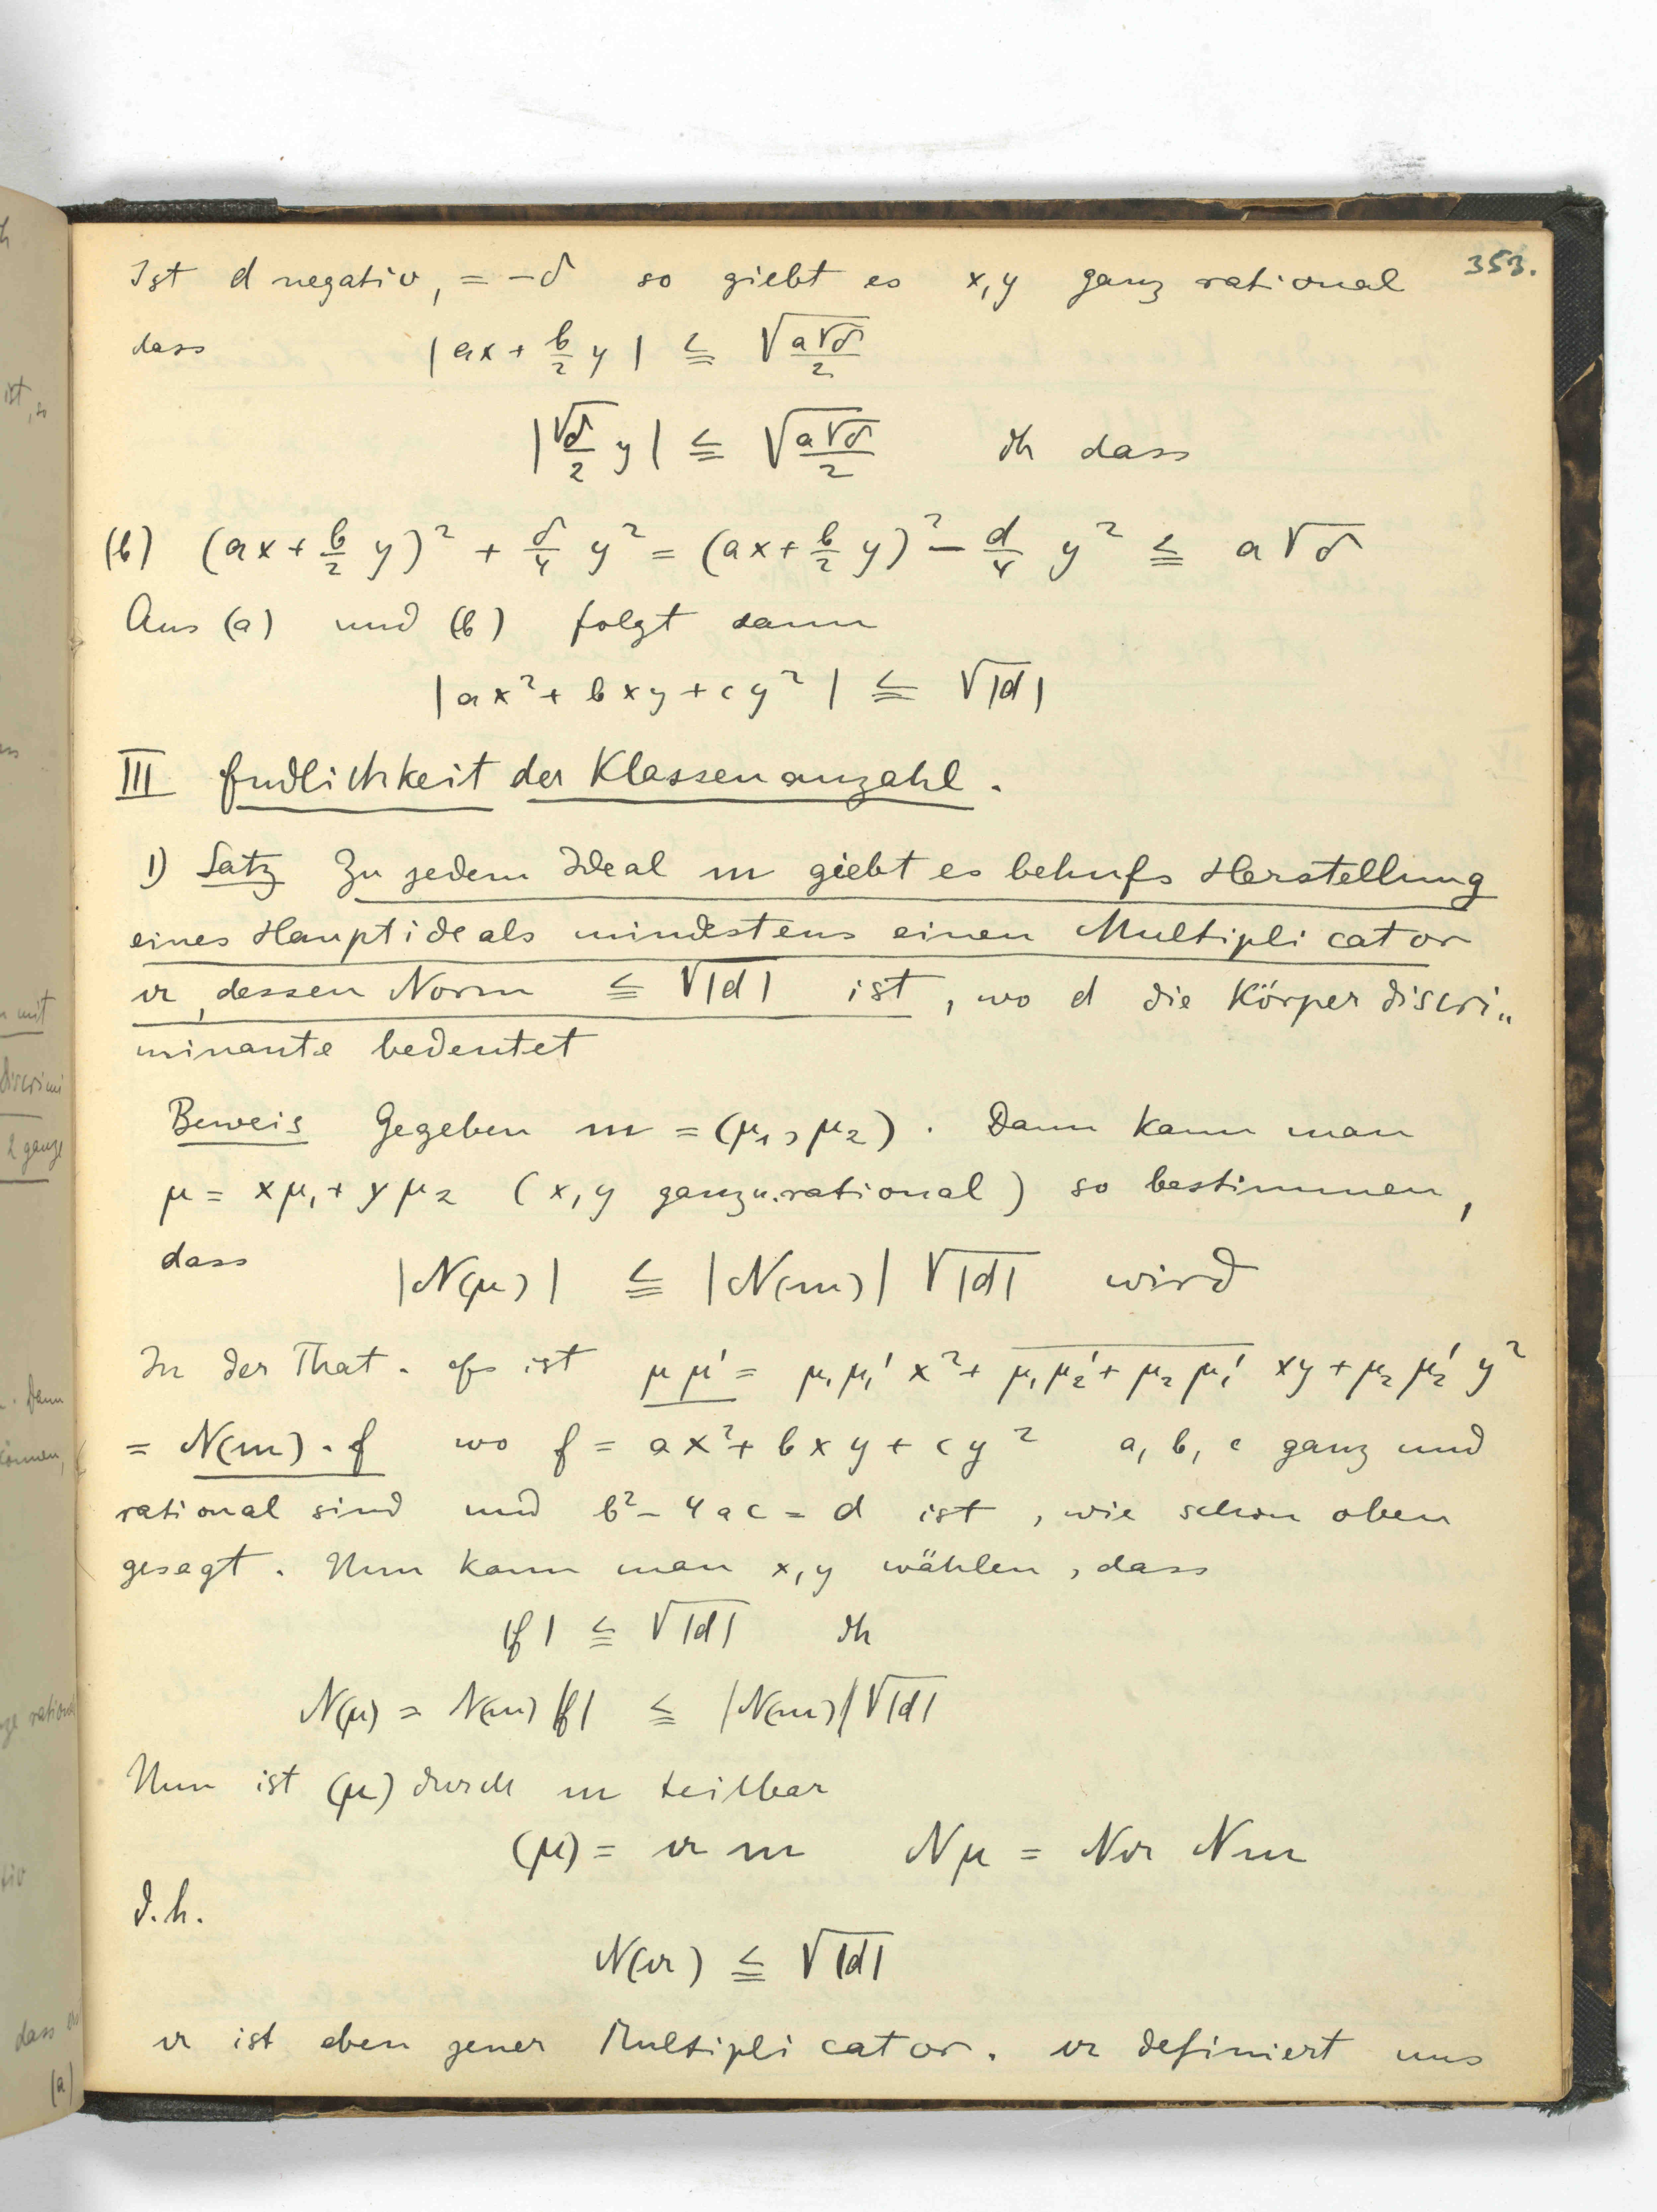 353.
Ist d negativ, = −δ so giebt es x, y ganz rational
dass |ax + b/2 y| ≦ √(a√δ/2)
|√δ/2 y| ≦ √(a√δ/2) dh dass
(b) (ax + b/2 y)² + δ/4 y² = (ax + b/2 y)² − d/4 y² ≦ a√δ
Aus (a) und (b) folgt dann
|ax² + bxy + cy²| ≦ √|d|
III Endlichkeit der Klassenanzahl.
1) Satz Zu jedem Ideal m giebt es behufs Herstellung
eines Hauptideals mindestens einen Multiplicator
n, dessen Norm ≦ √|d| ist, wo d die Körperdiscri„
minante bedeutet
Beweis Gegeben m = (μ₁, μ₂). Dann kann man
μ = xμ₁ + yμ₂ (x, y ganz u. rational) so bestimmen,
dass |N(μ)| ≦ |N(m)| √|d| wird
In der That. Es ist μμ' = μ₁μ₁' x² + μ₁μ₂' + μ₂μ₁' xy + μ₂μ₂' y²
= N(m) . f wo f = ax² + bxy + cy² a, b, c ganz und
rational sind und b² − 4ac = d ist, wie schon oben
gesagt. Nun kann man x, y wählen, dass
|f| ≦ √|d| dh
N(μ) = N(m) |f| ≦ |N(m)| √|d|
Nun ist (μ) durch m teilbar
(μ) = n m Nμ = Nn Nm
d.h.
N(n) ≦ √|d|
n ist eben jener Multiplicator. n definiert uns
ist, so
mit
Discrimi
2 ganze
Dann
können,
dass
(a)